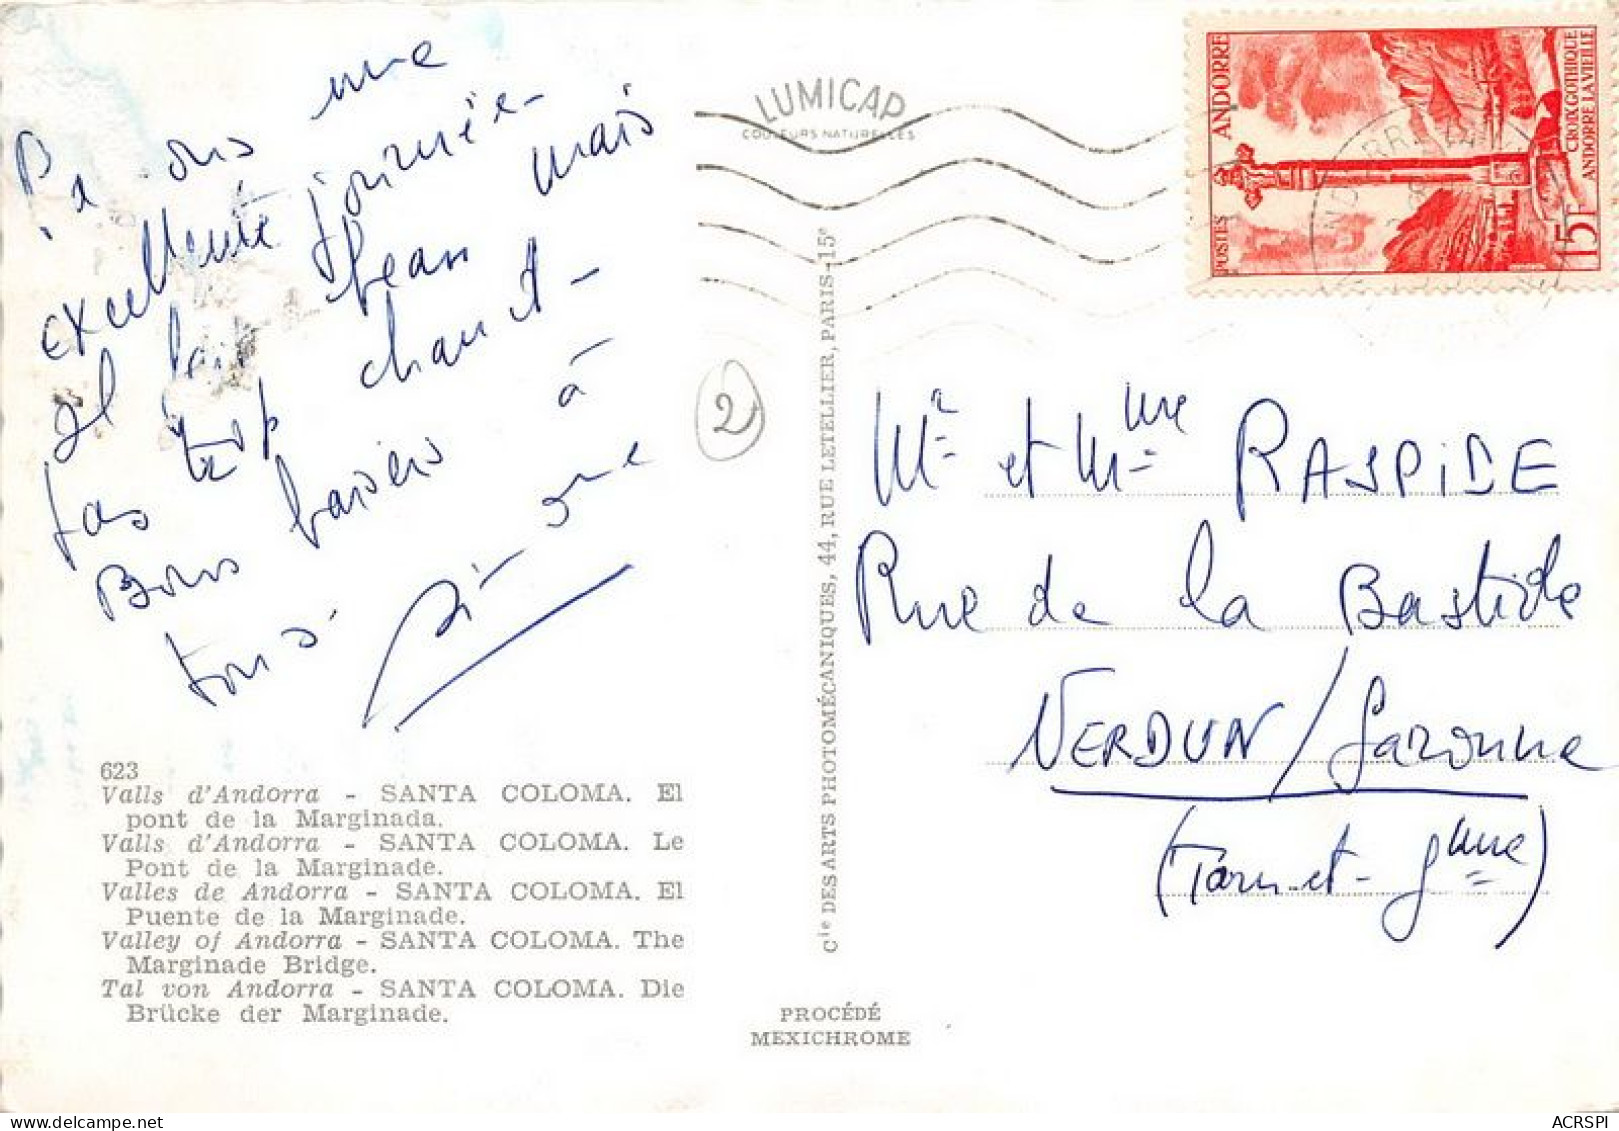 une
excellente journée -
Il fait beau mais
pas trop chaud -
Bons baisers à
tous.
Simone
623
Valls d'Andorra - SANTA COLOMA. El
pont de la Marginada.
Valls d'Andorra - SANTA COLOMA. Le
Pont de la Marginade.
Valles de Andorra - SANTA COLOMA. El
Puente de la Marginade.
Valley of Andorra - SANTA COLOMA. The
Marginade Bridge.
Tal von Andorra - SANTA COLOMA. Die
Brücke der Marginade.
LUMICAP
COULEURS NATURELLES
2
Cie DES ARTS PHOTOMÉCANIQUES, 44, RUE LETELLIER, PARIS-15e
PROCÉDÉ
MEXICHROME
POSTES ANDORRE
CROIX GOTHIQUE
ANDORRE LA VIEILLE
15F
Mr et Mme RASPIDE
Rue de la Bastide
VERDUN / Garonne
(Tarn-et-Gnne)
ACRSPI